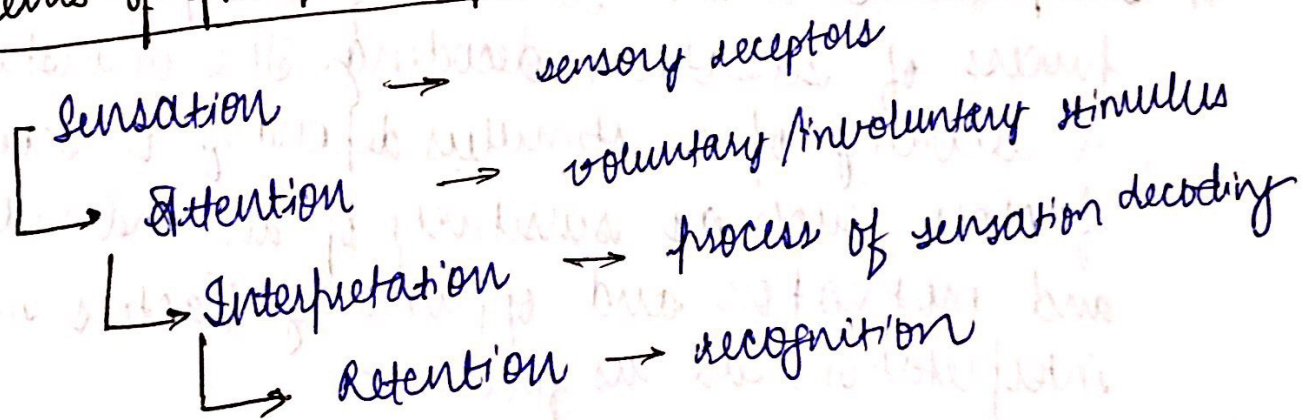 of
Sensation → sensory receptors
Attention → voluntary/involuntary stimulus
Interpretation → process of sensation decoding
Retention → recognition